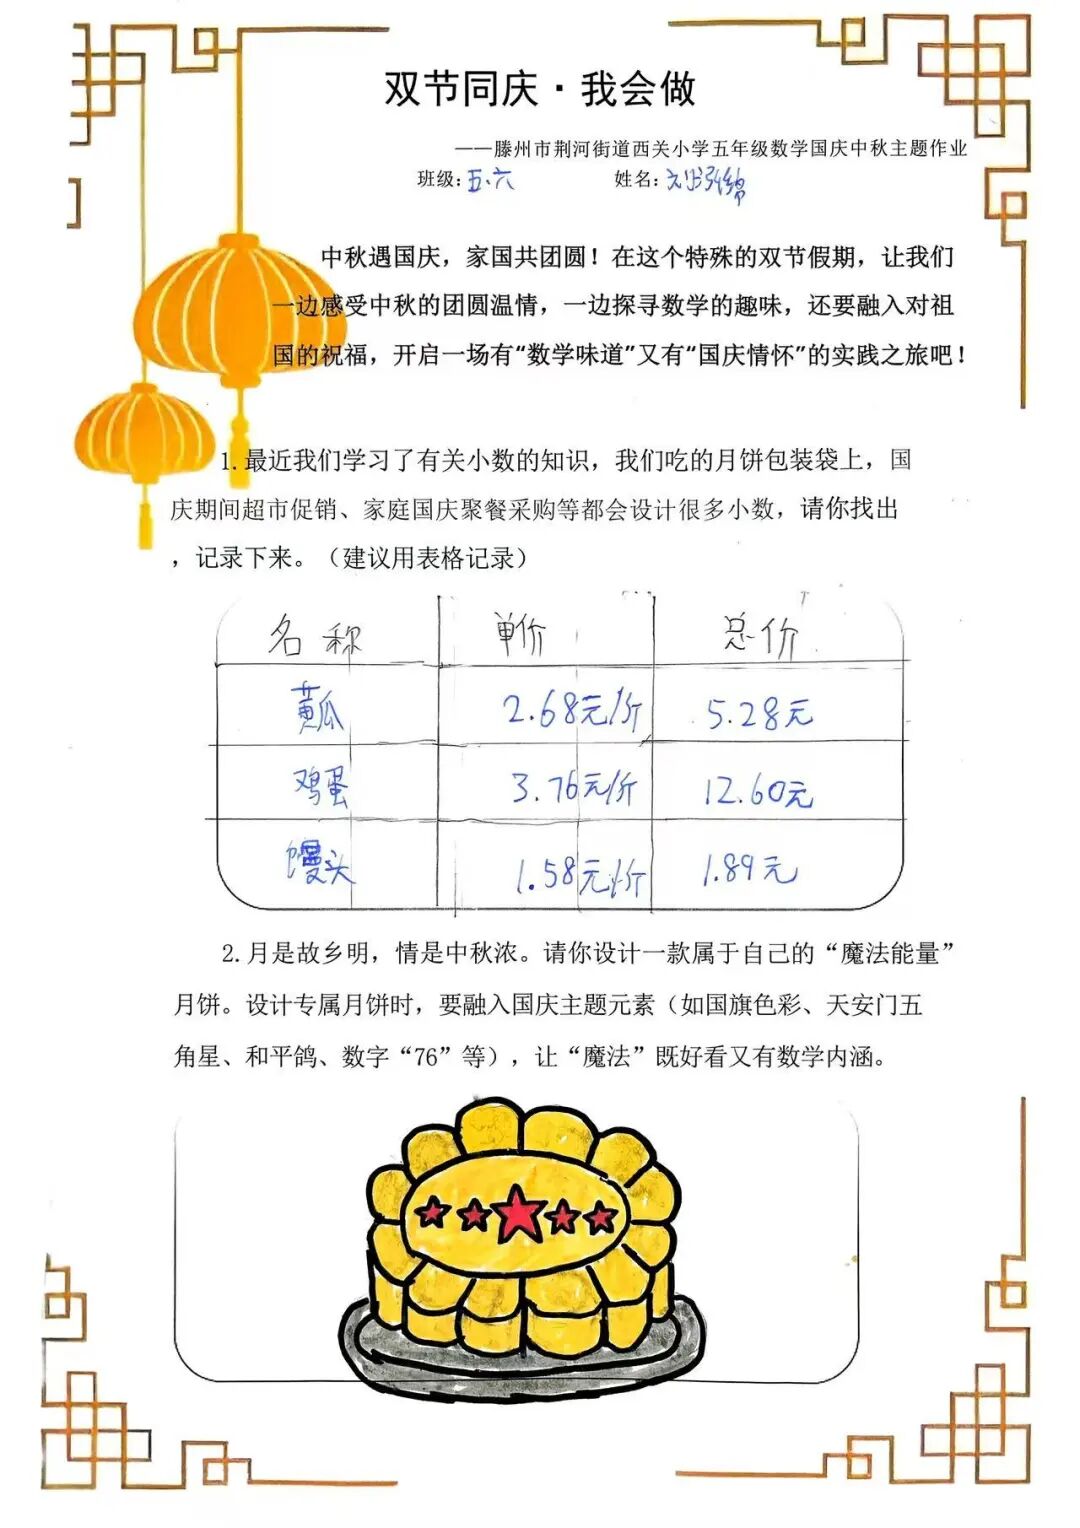 双节同庆·我会做
——滕州市荆河街道西关小学五年级数学国庆中秋主题作业
班级:五.六 姓名:
中秋遇国庆，家国共团圆！在这个特殊的双节假期，让我们
一边感受中秋的团圆温情，一边探寻数学的趣味，还要融入对祖
国的祝福，开启一场有“数学味道”又有“国庆情怀”的实践之旅吧！
1.最近我们学习了有关小数的知识，我们吃的月饼包装袋上，国
庆期间超市促销、家庭国庆聚餐采购等都会设计很多小数，请你找出
，记录下来。（建议用表格记录）
名称 单价 总价
黄瓜 2.68元/斤 5.28元
鸡蛋 3.76元/斤 12.60元
馒头 1.58元/斤 1.89元
2.月是故乡明，情是中秋浓。请你设计一款属于自己的“魔法能量”
月饼。设计专属月饼时，要融入国庆主题元素（如国旗色彩、天安门五
角星、和平鸽、数字“76”等），让“魔法”既好看又有数学内涵。